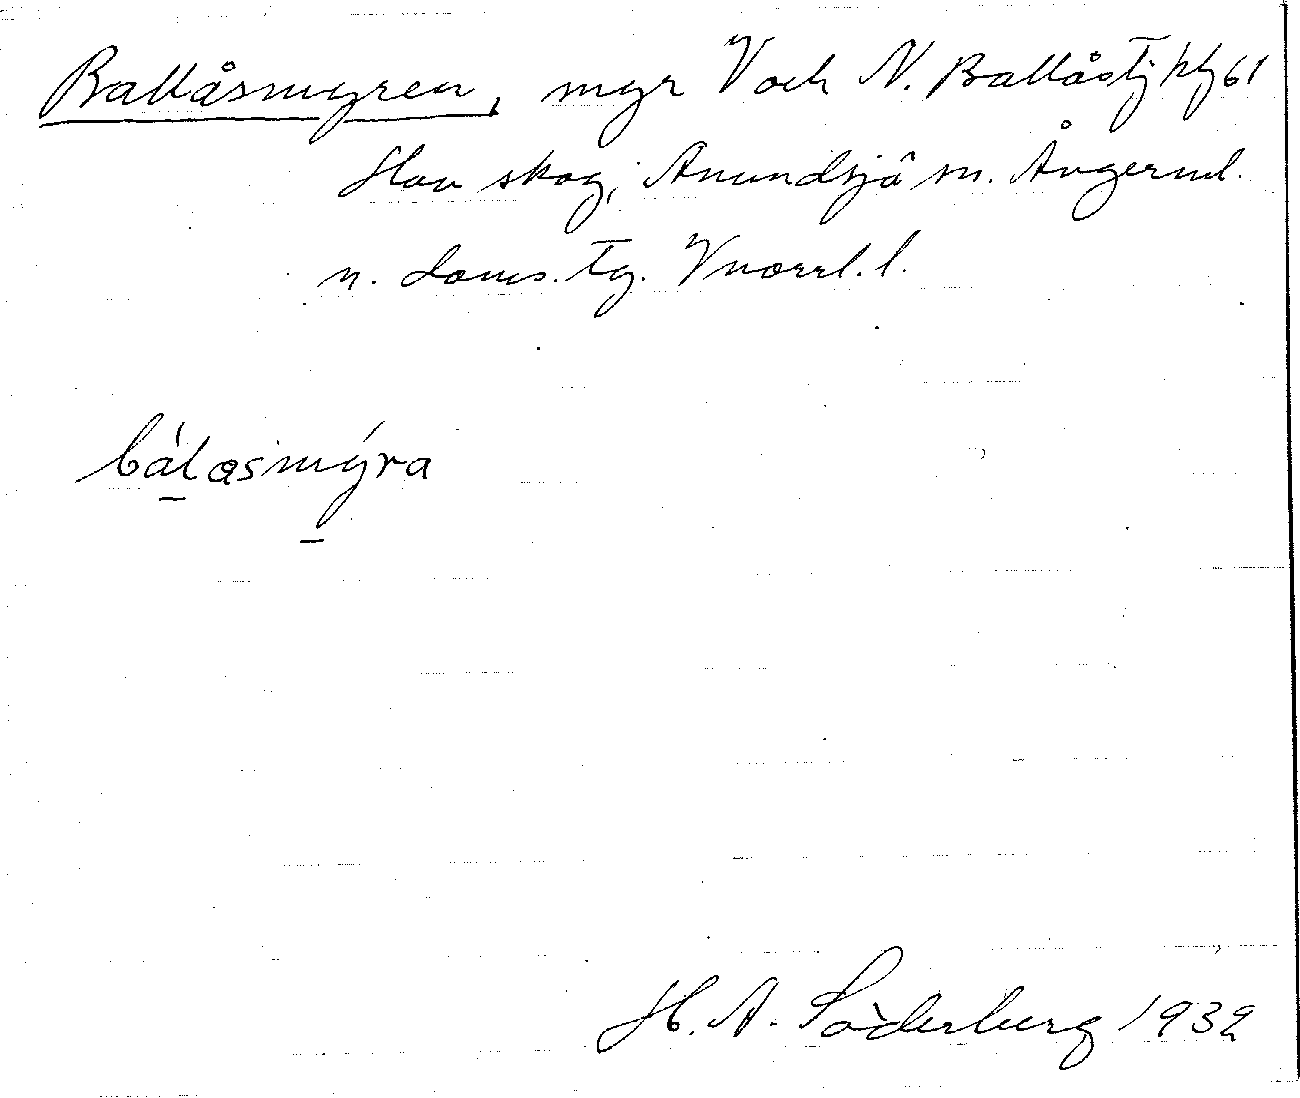 Ballåsmyren, myr V och N. Ballåstj hfg 61
skog, Anundsjö sn. Ångerml.
n. doms. Tg. Vnorrl. l.
bálasmýra
H. A. Söderberg 1932